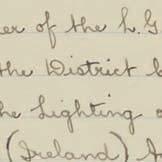 er of the L.G
the District
the Lighting o
(Ireland) A